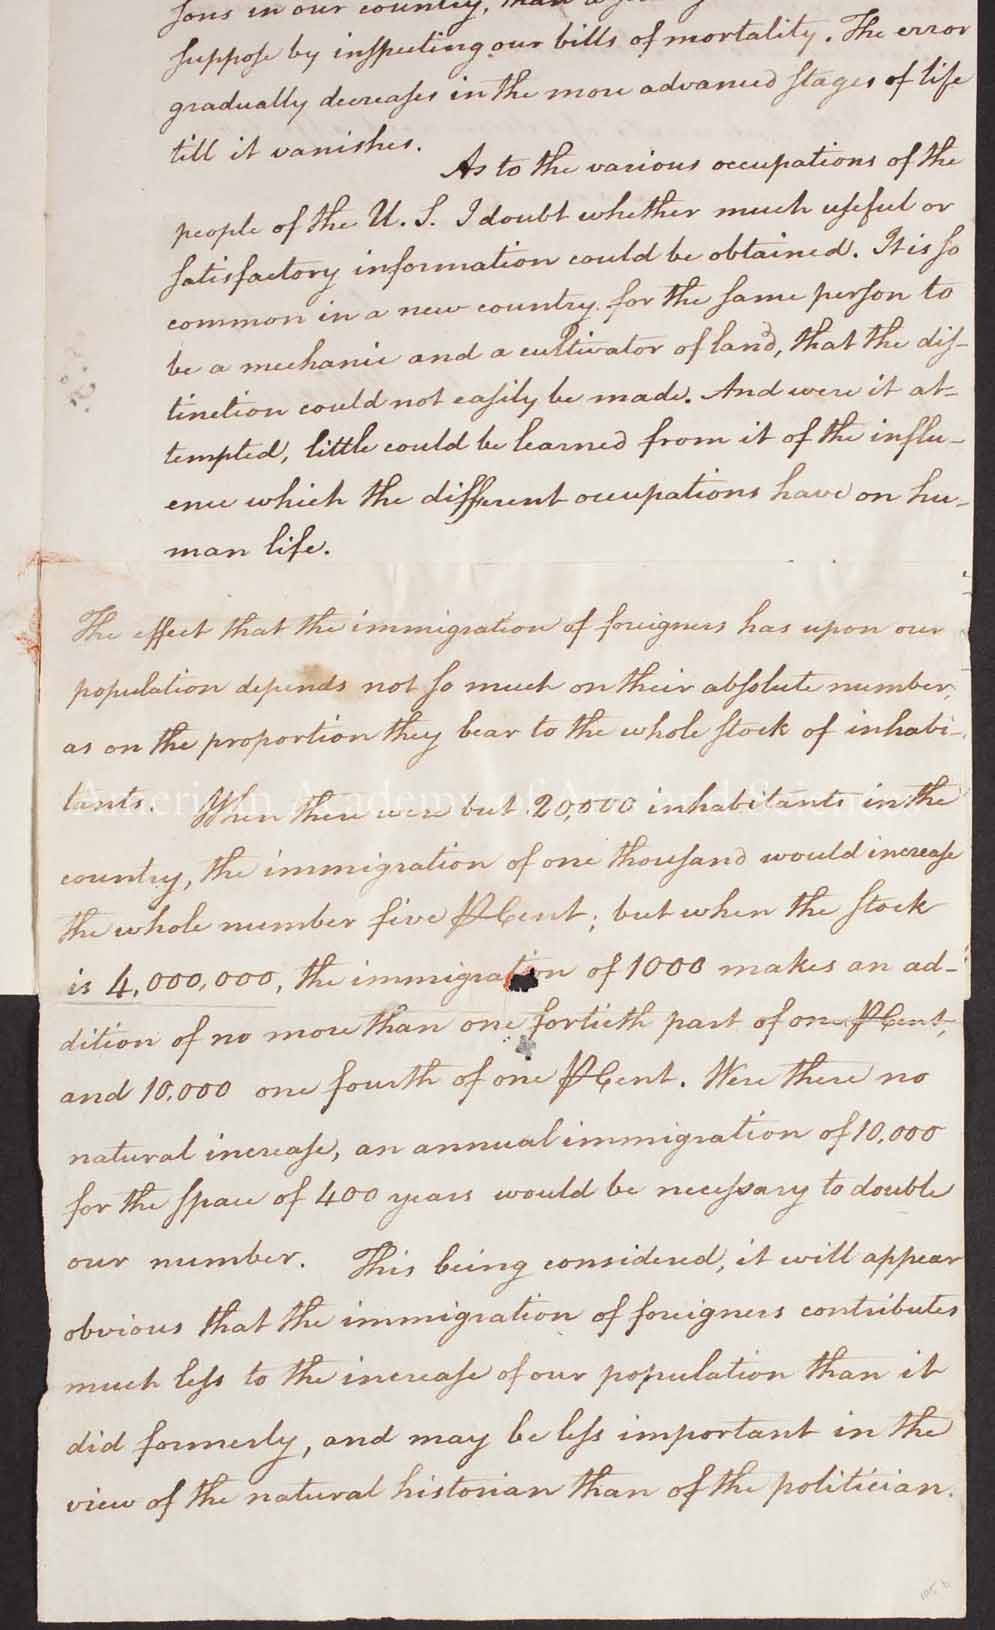 sons in our country, than a
suppose by inspecting our bills of mortality. The error
gradually decreases in the more advanced stages of life
till it vanishes.
As to the various occupations of the
people of the U. S. I doubt whether much useful or
satisfactory information could be obtained. It is so
common in a new country for the same person to
be a mechanic and a cultivator of land, that the dis-
tinction could not easily be made. And were it at-
tempted, little could be learned from it of the influ-
ence which the different occupations have on hu-
man life.
The effect that the immigration of foreigners has upon our
population depends not so much on their absolute number,
as on the proportion they bear to the whole stock of inhabi-
tants. When there were but 20,000 inhabitants in the
American Academy of Arts and Sciences
country, the immigration of one thousand would increase
the whole number five P Cent; but when the stock
is 4,000,000, the immigration of 1000 makes an ad-
dition of no more than one fortieth part of one P Cent,
and 10,000 one fourth of one P Cent. Were there no
natural increase, an annual immigration of 10,000
for the space of 400 years would be necessary to double
our number. This being considered, it will appear
obvious that the immigration of foreigners contributes
much less to the increase of our population than it
did formerly, and may be less important in the
view of the natural historian than of the politician.